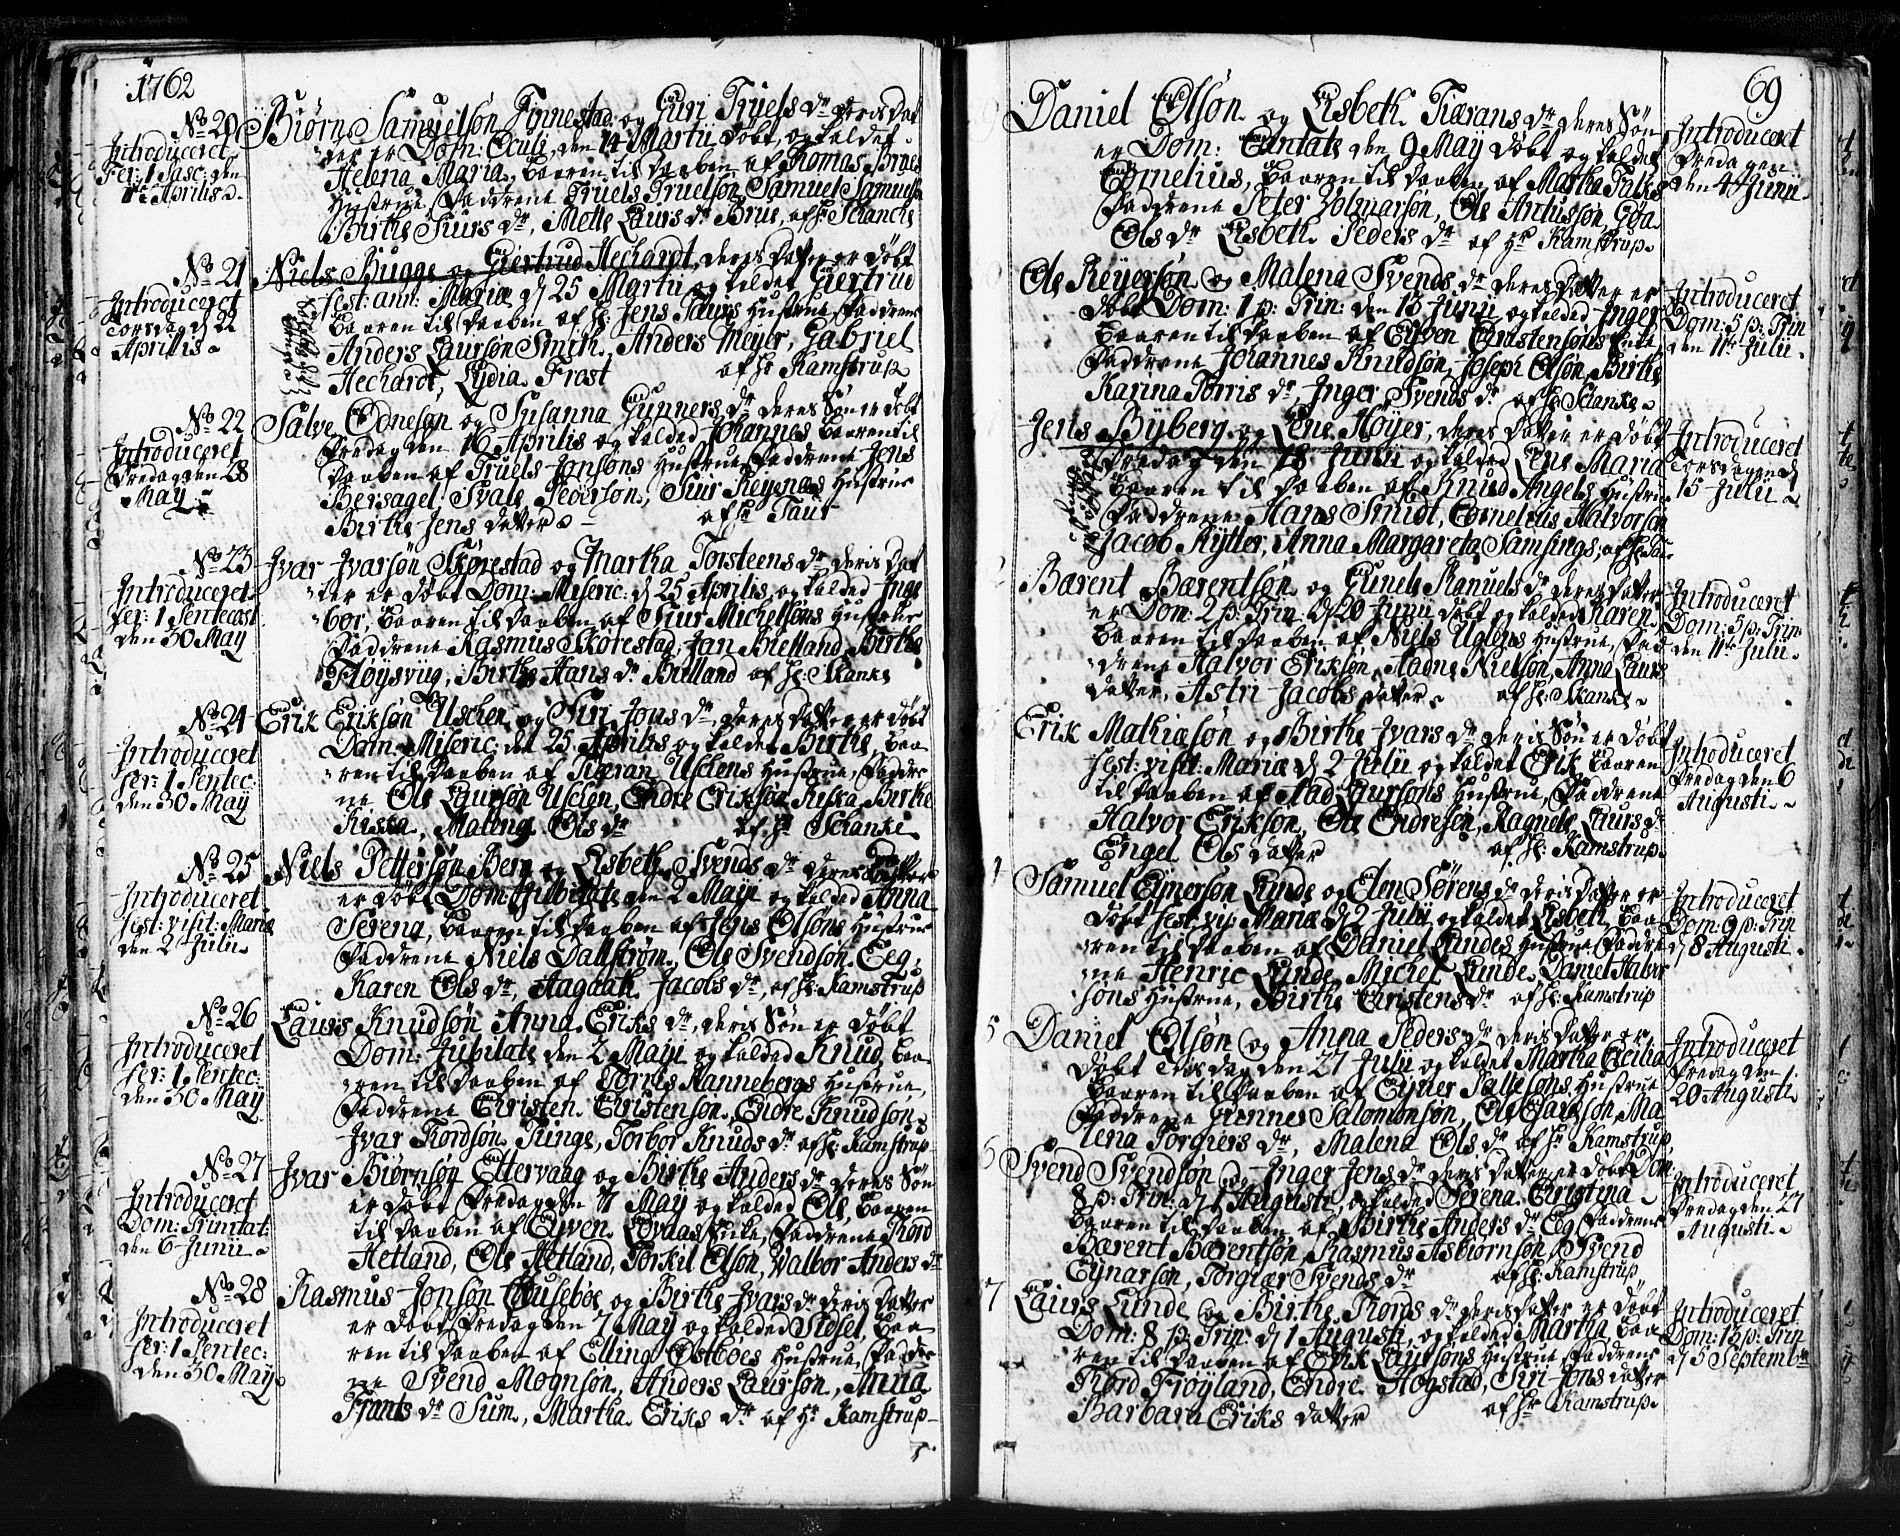 1762
No 20
Introduceret
Fer: 1 Pasc: den
Aprilis
Biørn Samuelsøn Finnestad og Giri Truels dr deris dat
ter er Dom: Oculi, den 14 Martii døbt, og kaldet
Helena Maria, baaren til daaben af Thomas
Hustrue, Faddrene Truels Truelsøn, Samuel Samuels
Birthe Siurs dr, Mette Laurs dr Brue, af hr Schancke
No 21
Introduceret
Torsdag d 22
Aprilis
Niels Bugge og Giertrud Hechardt, deres datter er døbt
Fest: ann: Mariæ d 25 Martii og kaldet Giertrud
baaren til daaben af hr Jens Tauss Hustrue, Faddrene
Anders Laursøn Smith, Anders Meyer, Gabriel
Hechardt, Lydia Frost af hr Kamstrup
No 22
Introduceret
Fredag den 28
May
Salve Odnesøn og Susanna Gunners dr deres Søn er døbt
Fredag den 16 Aprilis og kaldet Johannes baaren til
daaben af Truels Jonsøns Hustrue, Faddrene Jens
Bersagel, Svale Pedersøn, Siur Reyenæs Hustrue
Birthe Jens datter af hr Taus
No 23
Introduceret
Fer: 1 Pentecost
den 30 May
Ivar Ivarsøn Skjørestad og Martha Torsteens dr, deris dat
ter er døbt Dom: Miseric: d 25 Aprilis, og kaldet Inge
bor, baaren til daaben af Siur Michelsøns Hustrue
Faddrene Rasmus Skorestad, Jan Bielland, Birthe
Fløysviig, Birthe Hans dr Bielland af hr: Skanke
No 24
Introduceret
Fer: 1 Pentec:
den 30 May
Erik Eriksøn Uschen og Siri Jons dr, deres datter er døbt
Dom: Miseric: det 25 Aprilis og kaldet Birthe, baa
ren til daaben af Tiæran Uschens Hustrue, Faddre
ne Ole Laursøn Uschen, Endre Eriksøn Riska, Birthe
Riska, Malena Ols dr af hr Schanke
No 25
Introduceret
Fest: visit: Mariæ
den 2 Julii
Niels Pettersøn Berg og Lisbeth Svends dr deres Datter
er døbt Dom: Jubilate den 2 Maji og kaldet Anna
Serena, baaren til daaben af Jens Olsøns Hustrue
Faddrene Niels Dallstrøm, Ole Svendsøn Eeg,
Karen Ols dr, Aagaak Jacobs dr, af hr: Kamstrup
No 26
Introduceret
Fer: 1 Pentec:
den 30 May
Laurs Knudsøn Anna Eriks dr, deris Søn er døbt
Dom: Jubilate den 2 Maji og kaldet Knud, baa
ren til daaben af Torris Hannebergs Hustrue,
Faddrene Christen Christensøn, Endre Knudsøn,
Ivar Tordsøn, Tinge, Torbor Knuds dr af hr: Kamstrup
No 27
Introduceret
Dom: Trinitat:
den 6 Junii
Ivar Biørnsøn Ettervaag og Birthe Anders dr deres Søn
er døbt Fredag den 7 May og kaldet Ole, baaren
til daaben af Eyven Lovaas Enke, Faddrene Thord
Hetland, Ole Hetland, Torkil Olsøn, Valbor Anders dr
No 28
Introduceret
Fer: 1 Pentec:
den 30 May
Rasmus Jonsøn Husebøe og Birthe Ivars dr deris datter
er døbt Fredag den 7 May og kaldet Sidsel, baa
ren til daaben af Elling Østboes Hustrue, Fadde
ne Svend Mognsøn, Anders Laursøn, Anna
Frants dr Sum, Martha Eriks dr af hr Kamstrup
69
Daniel Olsøn og Lisbeth Tiærans dr deres Søn
er Dom: Cantate den 9 May døbt og kaldet
Cornelius, baaren til daaben af Martha Falk
Faddrene Peter Volmarsøn, Ole Antussøn,
Ols dr Lisbeth Peders dr af hr Kamstrup
Introduceret
Fredagen
den 4de Junii
Ole Reyersøn og Malena Svends dr deres datter er
døbt Dom: 1 p: Trin: den 13 Junii og kaldet Inger
baaren til daaben af Eyven Christensøns Enke,
Faddrene Johannes Knudsøn, Joseph Olsøn, Birthe
Karina Torris dr, Inger Svends dr af hr Schanke
Introduceret
Dom: 5 p: Trin
den 11te Julii
Jens Byberg og Lene Høyer, deres datter er døbt
Fredag den 18 Junii og kaldet Lene Maria
baaren til daaben af Knud Angels Hustrue
Faddrene Hans Smidt, Cornelius Halvorsøn
Jacob Rytter, Anna Margareta Samsings,
Introduceret
Torsdagen d
15 Julii
Bærent Bærentsøn og Gunele Ranuels dr deres datter
er Dom: 2 p: Trin: d 20 Junii døbt og kaldet Karen
baaren til daaben af Niels Hustrue, Fad
drene Halvor Eriksøn, Aadne Nielsøn, Anna Laurs
datter, Astri Jacobs datter af hr: Skanke
Introduceret
Dom: 5 p: Trin
den 11te Julii
Erik Mathiæsøn og Birthe Ivars dr deris Søn er døbt
Fest: visit: Mariæ d 2 Julii og kaldet Erik baaren
til daaben af Aad Laursøns Hustrue, Faddrene
Halvor Eriksøn, Ole Endresøn, Ragnele Laurs dr
Engel Ols datter af hr: Kamstrup
Introduceret
Fredag den 6
Augusti
Samuel Ejnersøn Lunde og Elen Sørens dr deris datter er
døbt Fest: vis: Mariæ d 2 Julii og kaldet Lisbeth, baa
ren til daaben af Daniel Lundes Hustrue, Faddre
ne Henric Lunde, Michel Lunde, Daniel Halvor
søns Hustrue, Birthe Christens dr af hr: Kamstrup
Introduceret
Dom: 9 p: Trin
d 8 Augusti
Daniel Olsøn og Anna Peders dr deris datter er
døbt Tirsdag den 27 Julii og kaldet Martha Cecilia
baaren til daaben af Eyner Salvesøns Hustrue
Faddrene Giennes Salomonsøn, Ole Ma
lena Torgiers dr, Malena Ols dr af hr Kamstrup
Introduceret
Fredag den
20 Augusti
6
Svend Svendsøn og Inger Jens dr deris datter er døbt Dom
8 p: Trin: d 1 Augusti, og kaldet Serena Christina
baaren til daaben af Birthe Anders dr Eeg, Faddrene
Bærent Bærentsøn, Rasmus Asbiørnsøn, Svend
Eynarsøn, Torgiær Svends dr af hr: Kamstrup
Introduceret
Fredag den 27
Augusti
7
Laurs Lunde og Birthe Thords dr deris datter er døbt
Dom: 8 p: Trin: d 1 Augusti, og kaldet Martha, baa
ren til daaben af Erik Laursøns Hustrue, Faddrene
Thord Frøyland, Endre Hogstad, Siri Jons datter
Barbara Eriks datter af hr Kamstrup
Introduceret
Dom: 13 p: Trin
d 5 Septembr